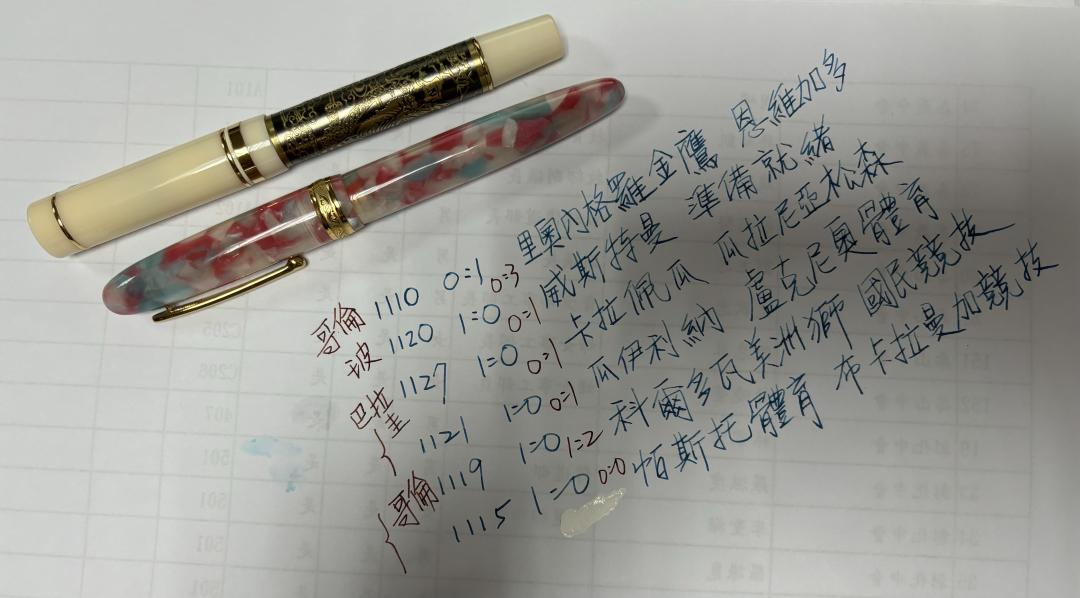 哥倫 1110 0=1 0=3 里奧內格羅金鷹 恩維加多
玻 1120 1=0 0=1 威斯特曼 準備就緒
巴拉圭 1127 1=0 0=1 卡拉佩瓜 瓜拉尼亞松森
1121 1=0 0=1 瓜伊利納 盧克尼奧體育
哥倫 1119 1=0 1=2 科爾多瓦美洲獅 國民競技
1115 1=0 0=0 帕斯托體育 布卡拉曼加競技
A101
C205
C206
407
501
501
501
501